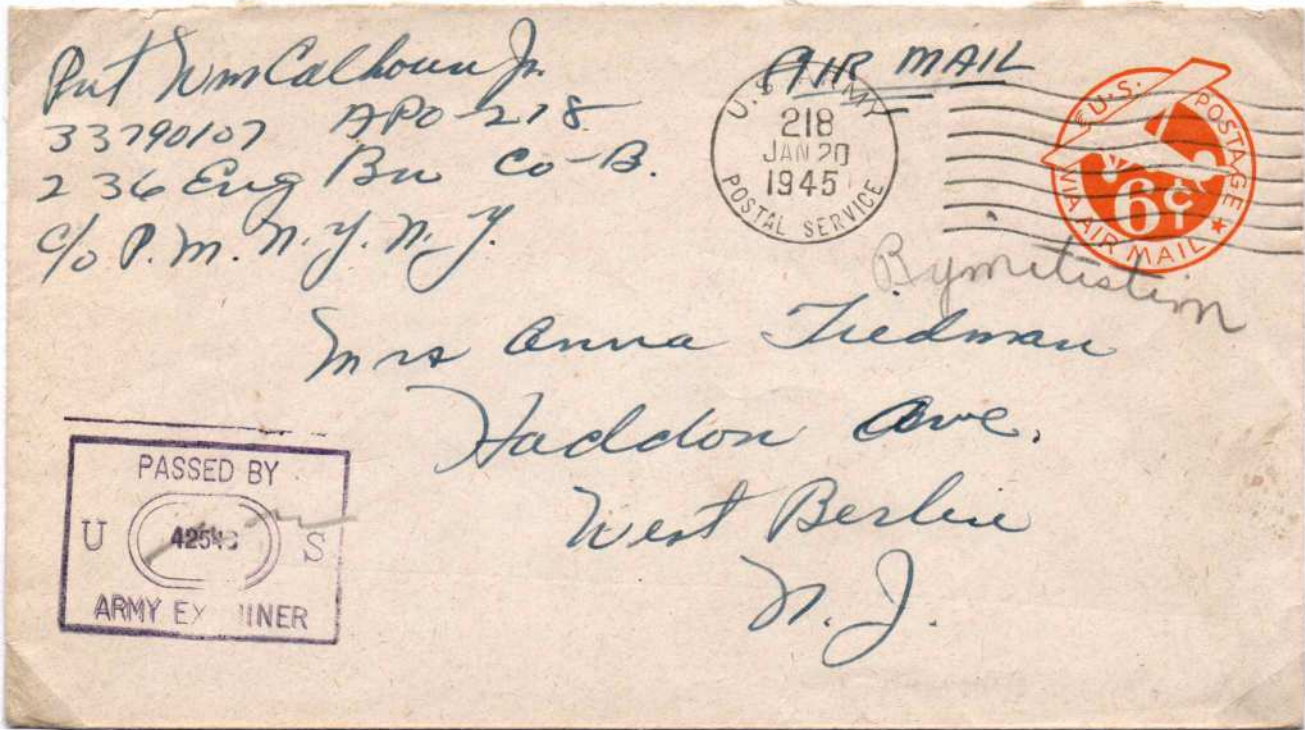 Pvt Wm Calhoun Jr.
33790107 APO-218
236 Eng Bn Co-B.
c/o P.M. N.Y. N.Y.
AIR MAIL
U.S. ARMY
218
JAN 20
1945
POSTAL SERVICE
U.S. POSTAGE
6¢
VIA AIR MAIL
Mrs Anna Tiedman
Haddon Ave.
West Berlin
N.J.
PASSED BY
U S
ARMY EX INER